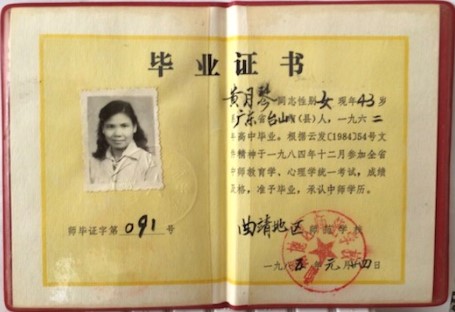 毕业证书
黄月琴同志性别女现年43岁
广东省台山市(县)人，一九六二
年高中毕业。根据云发(1984)54号文
件精神于一九八四年十二月参加全省
中师教育学、心理学统一考试，成绩
及格，准予毕业，承认中师学历。
师毕证字第091号
曲靖地区师范学校
一九八五年元月十四日